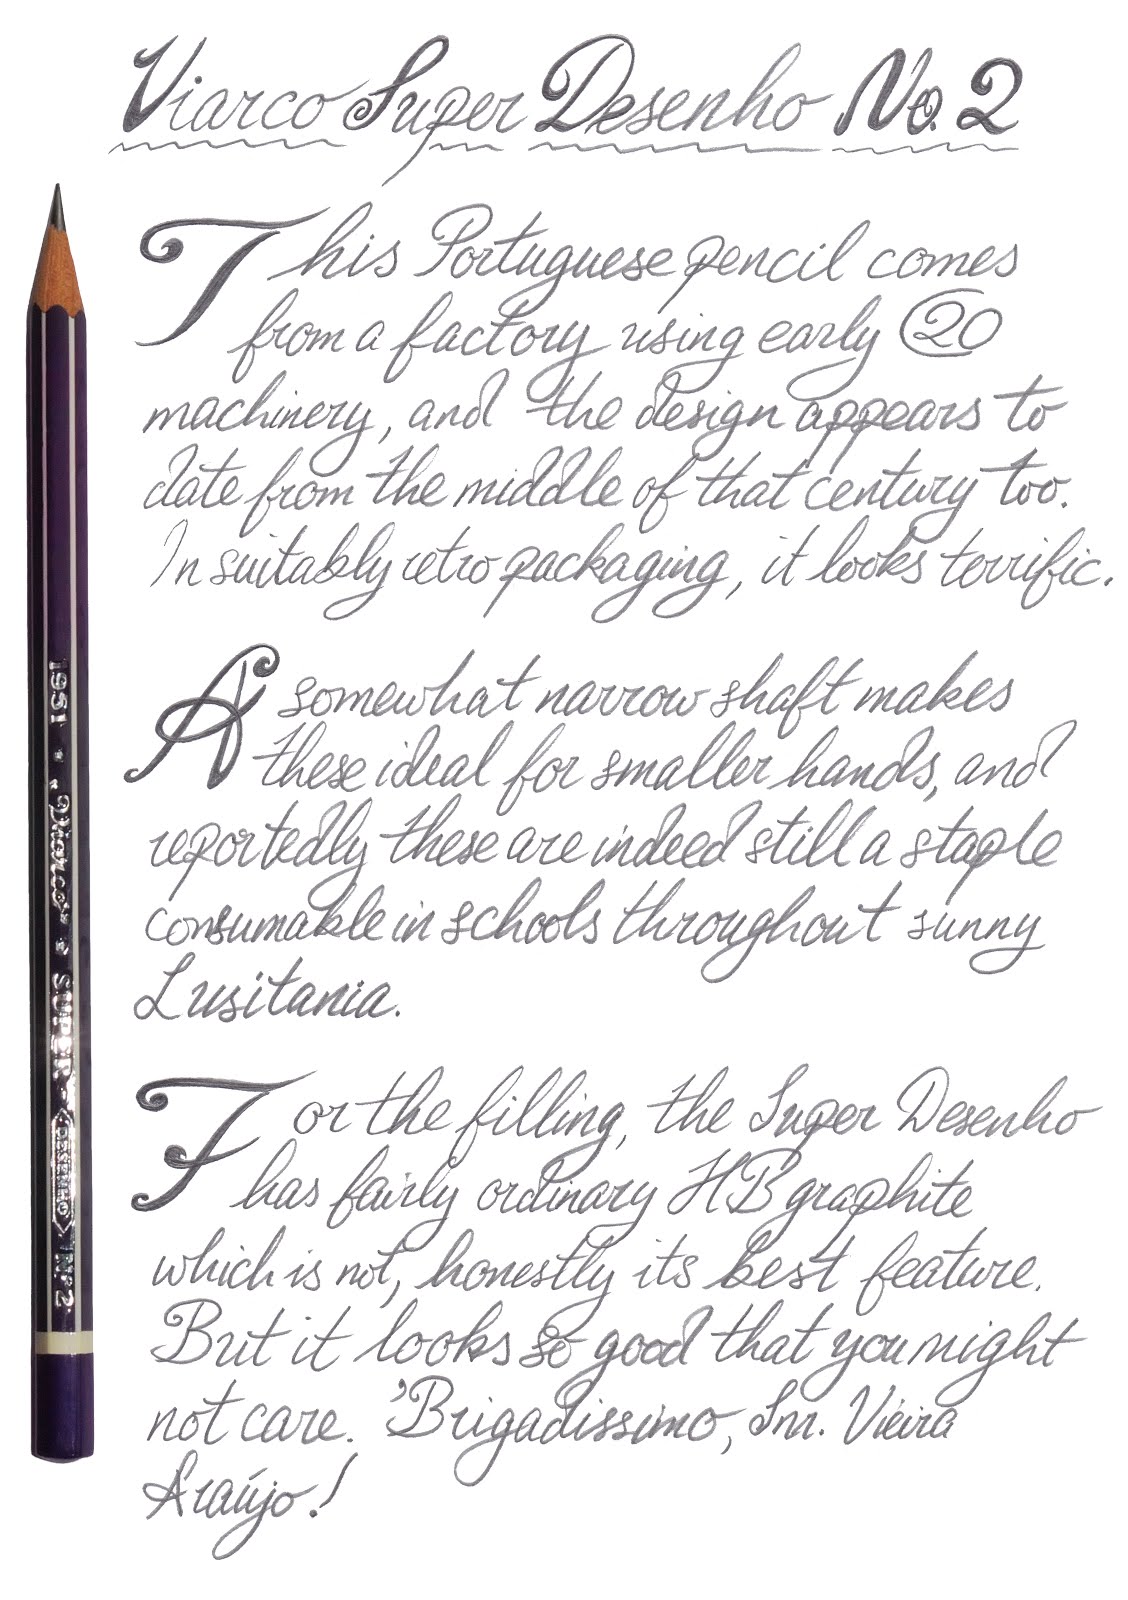 Viarco Super Desenho No. 2
This Portuguese pencil comes
from a factory using early 20
machinery, and the design appears to
date from the middle of that century too.
In suitably retro packaging, it looks terrific.
A somewhat narrow shaft makes
these ideal for smaller hands, and
reportedly these are indeed still a staple
consumable in schools throughout sunny
Lusitania.
For the filling, the Super Desenho
has fairly ordinary HB graphite
which is not, honestly its best feature.
But it looks so good that you might
not care. 'Brigadissimo, Snr. Vieira
Araújo!
1951 * "Viarco" * SUPER - DESENHO Nº 2